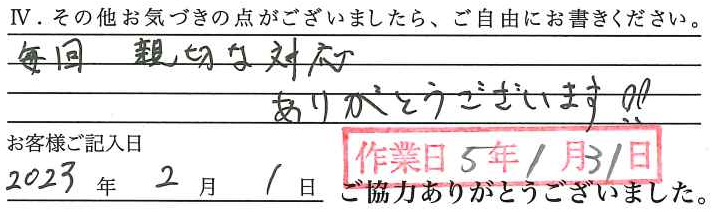 Ⅳ．その他お気づきの点がございましたら、ご自由にお書きください。
毎回　親切な対応
ありがとうございます!!
お客様ご記入日
2023 年 2 月 1 日
作業日 5年1月31日
ご協力ありがとうございました。